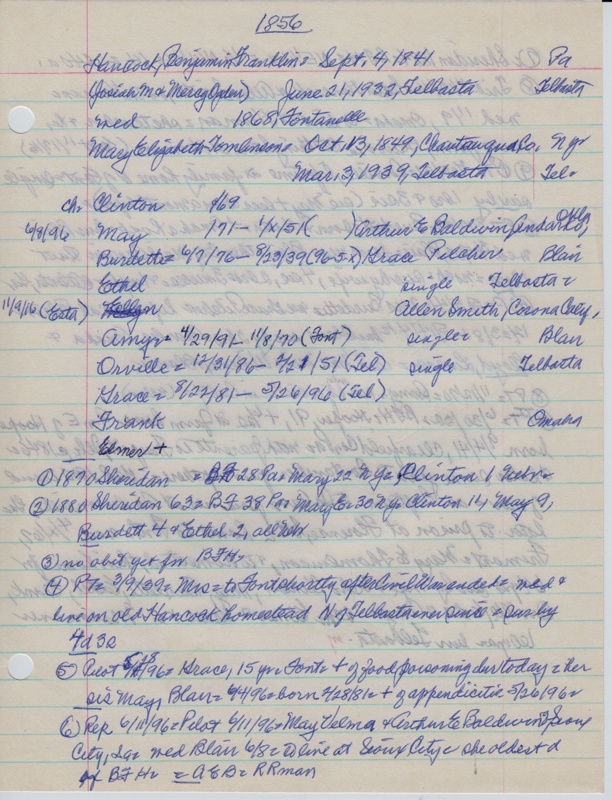 1856
Hancock, Benjamin Franklin = Sept. 4, 1841 Pa
(Josiah M & Mercy Ogden) June 21, 1932, Telbasta Telbasta
wed 1868, Fontanelle
Mary Elizabeth Tomlinson = Oct. 13, 1849, Chautauqua Co, N.Y.
Mar. 3, 1939, Telbasta Tel=
ch= Clinton /69
6/8/96 May /71 - 1/x/51( ) Arthur E Baldwin, Anadarko, Okla
Burdette = 6/7/76 - 8/23/39 Grace Pilcher Blair
Ethel single Telbasta
11/9/16 (Esta) Allen Smith, Corona Caty,
Amy = 4/29/91 - 11/8/70 (Font) single = Blair
Orville = 12/31/86 - 2/21/51 (Tel) single Telbasta
Grace = 8/22/81 - 5/26/96 (Tel)
Frank Omaha
Elmer +
① 1870 Sheridan = BF 28 Pa = Mary 22 N.Y. = Clinton 1 Nebr=
② 1880 Sheridan 63 = BF 38 Pa = Mary E = 30 N.Y. Clinton 11, May 9,
Burdett 4 & Ethel 2, all Neb
③ no obit yet for BFH=
④ PT = 3/9/39 = Mrs = to Font shortly after Civil War ended = wed &
live on old Hancock homestead N of Telbasta ever since = surv by
4d 3s
⑤ Pilot 96 = Grace, 15 yr = Font = + of food poisoning due today = her
sis May, Blair = 6/4/96 = born + of appendicitis 5/26/96 =
⑥ Rep 6/11/96 = Pilot 6/11/96 = May Velma & Arthur E Baldwin of Sioux
City, Ia = wed Blair 6/8 = to live at Sioux City = she oldest d
of BFH = = AEB = RRman